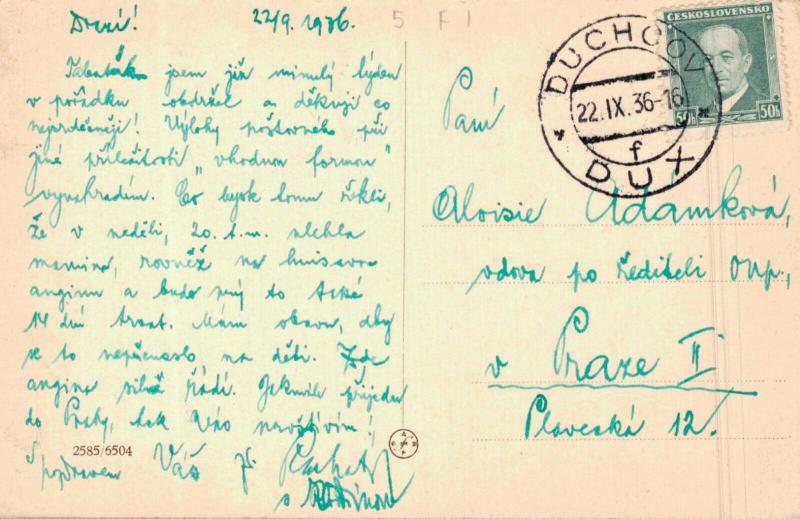 Drazí! 22/9. 1936.
5 F I
jsem již minulý týden
v pořádku obdržel a děkuji co
nejsrdečněji! Výlohy poštovného při
jiné příležitosti "vhodnou formou"
vynahradím. Co byste tomu řekli,
že v neděli, 20. t.m. ulehla
mamina, rovněž na
anginu a bude prý to také
14 dní trvat. Mám obavu, aby
se to nepřeneslo na děti. Zde
angina silně řádí. Jakmile přijedu
do Prahy, tak Vás navštívím!
S pozdravem Váš
s rodinou
2585/6504
ČESKOSLOVENSKO
50h 50h
DUCHCOV
22.IX.36-16
f
DUX
Paní
Aloisie Adámková,
vdova po řediteli
v Praze II
Plavecká 12.